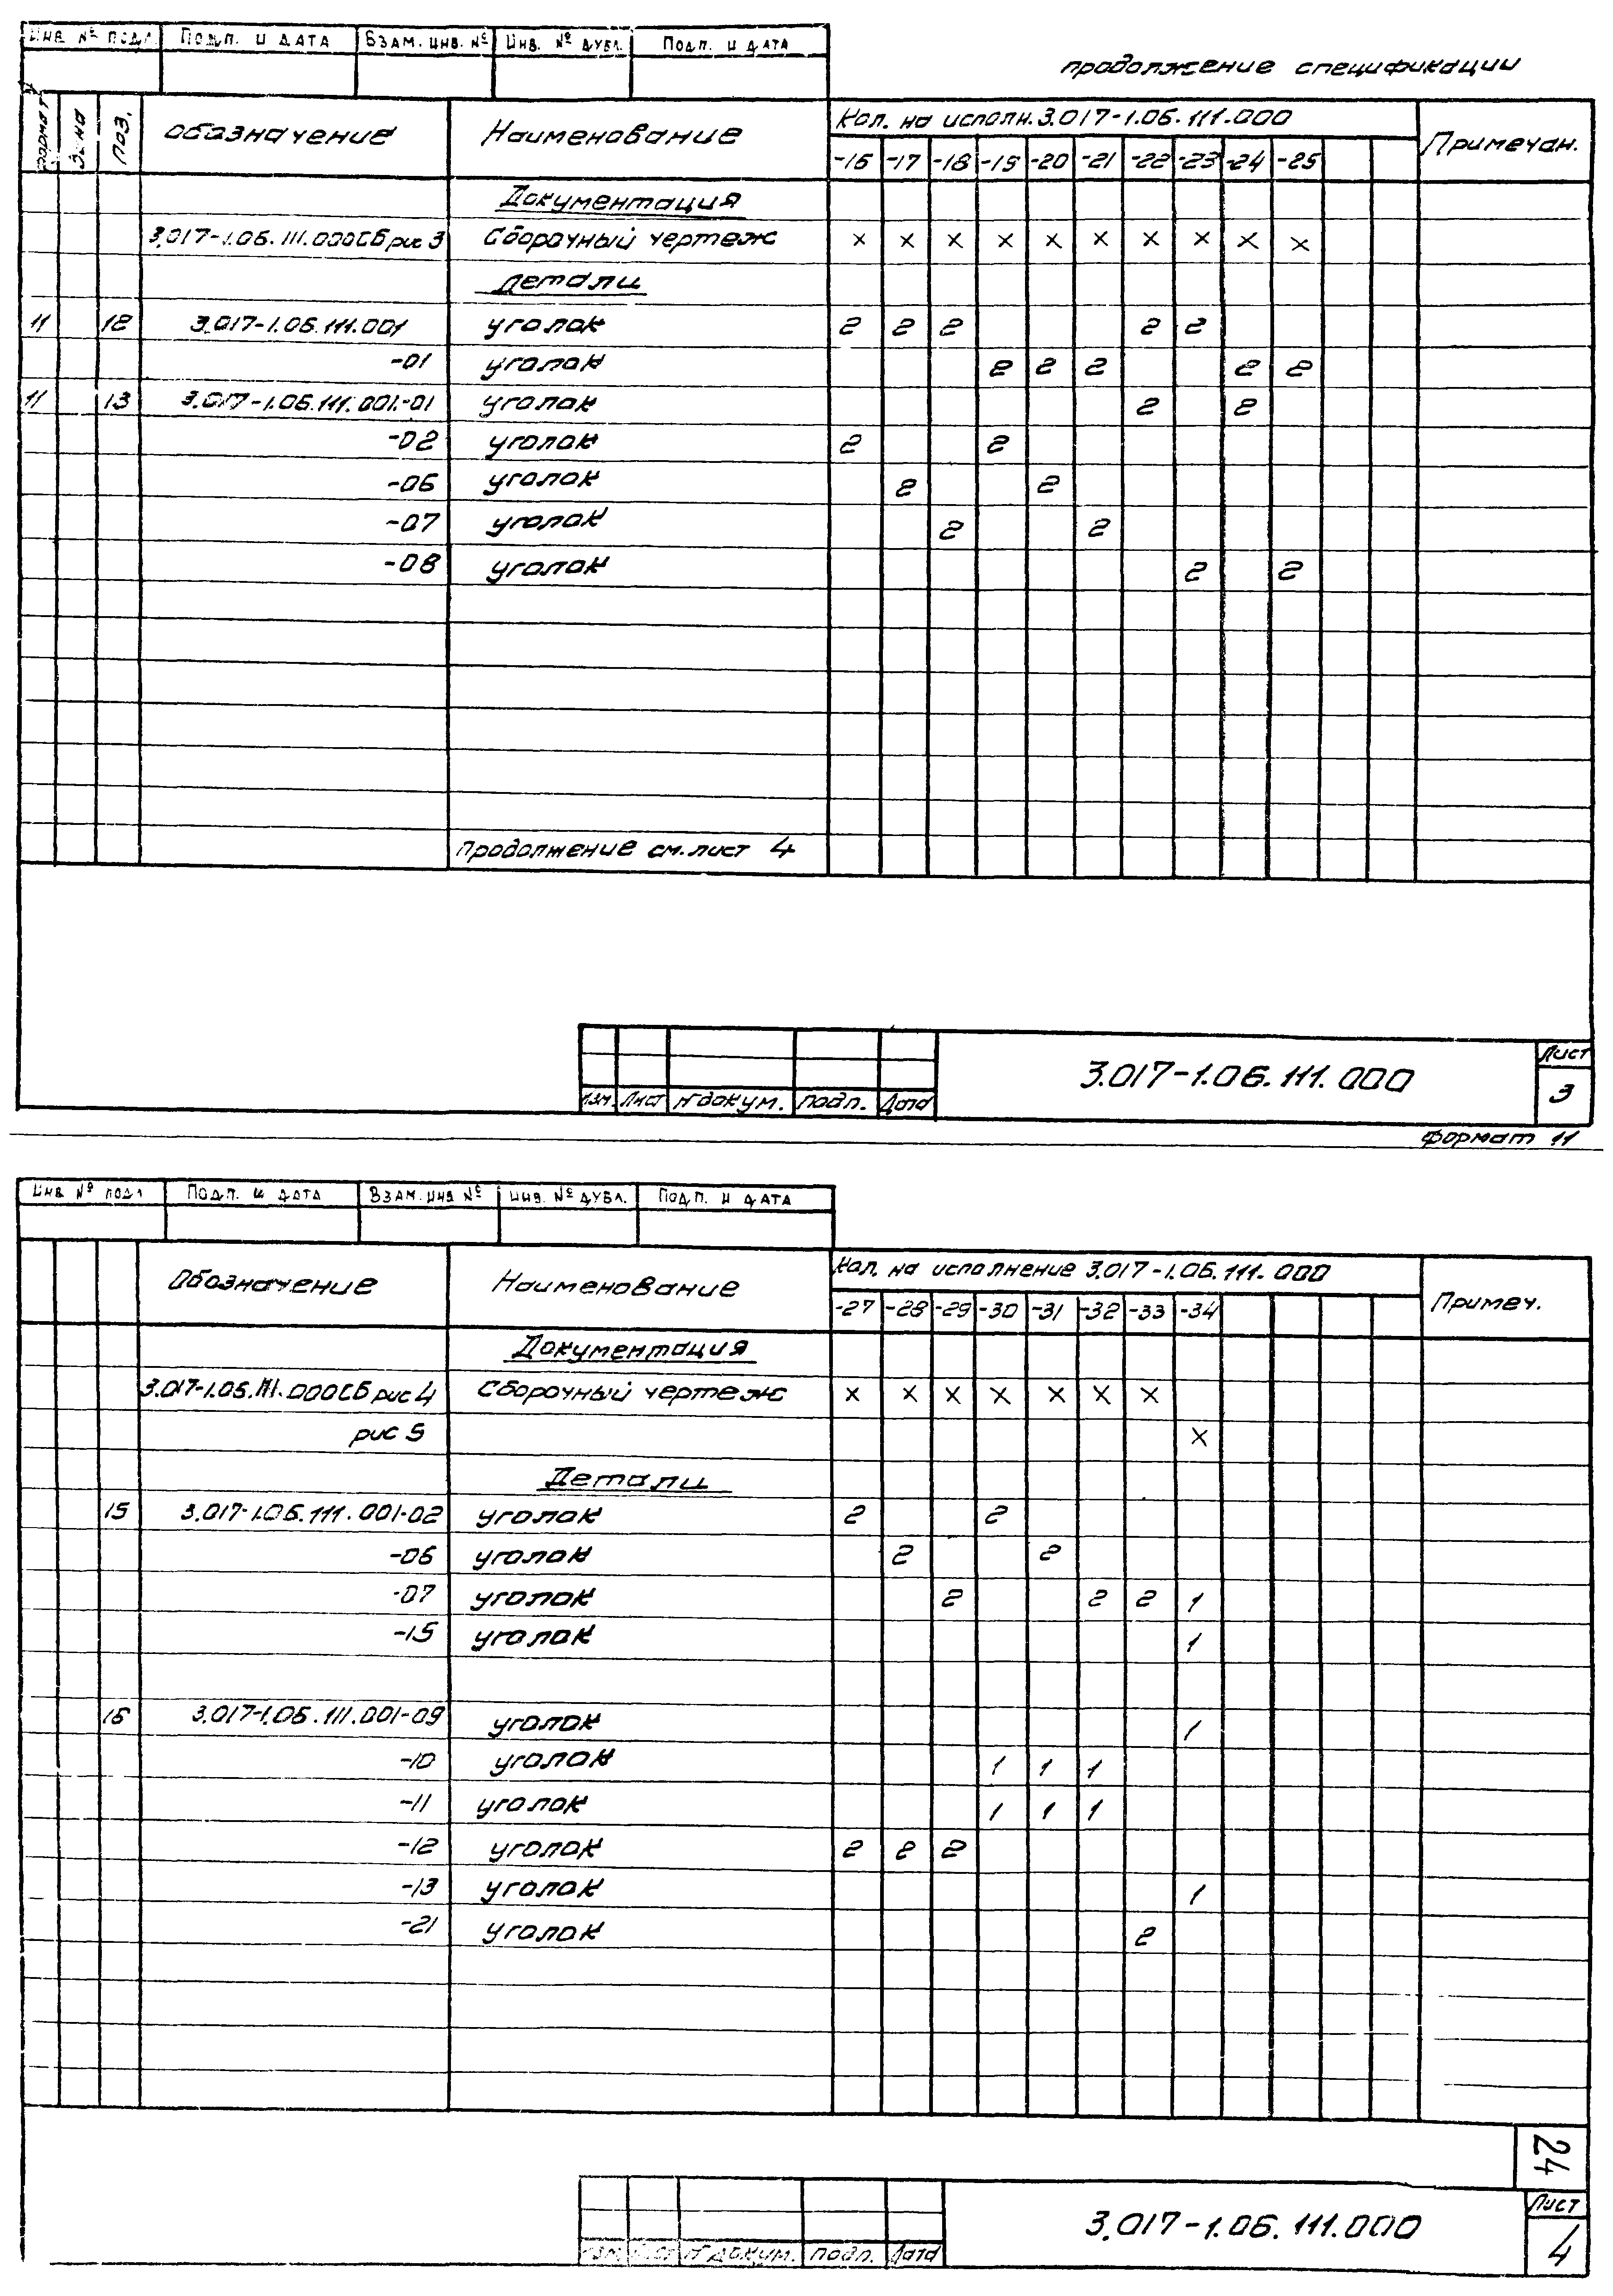 Инв. № подл. Подп. и дата Взам. инв. № Инв. № дубл. Подп. и дата
продолжение спецификации
формат Зона Поз. Обозначение Наименование Кол. на исполн. 3.017-1.06.111.000 Примечан.
-16 -17 -18 -19 -20 -21 -22 -23 -24 -25
Документация
3.017-1.06.111.000СБ рис 3 Сборочный чертеж × × × × × × × × × ×
Детали
11 12 3.017-1.06.111.001 уголок 2 2 2 2 2
-01 уголок 2 2 2 2 2
11 13 3.017-1.06.111.001.-01 уголок 2 2
-02 уголок 2 2
-06 уголок 2 2
-07 уголок 2 2
-08 уголок 2 2
продолжение см. лист 4
3.017-1.06.111.000
Лист
3
Изм. Лист № докум. подп. Дата
формат 11
Инв № подл Подп. и дата Взам. инв № Инв. № дубл. Подп. и дата
Обозначение Наименование Кол. на исполнение 3.017-1.06.111.000 Примеч.
-27 -28 -29 -30 -31 -32 -33 -34
Документация
3.017-1.06.111.000СБ рис 4 Сборочный чертеж × × × × × × ×
рис 5 ×
Детали
15 3.017-1.06.111.001-02 уголок 2 2
-06 уголок 2 2
-07 уголок 2 2 2 1
-15 уголок 1
16 3.017-1.06.111.001-09 уголок 1
-10 уголок 1 1 1
-11 уголок 1 1 1
-12 уголок 2 2 2
-13 уголок 1
-21 уголок 2
24
3.017-1.06.111.000
Лист
4
Изм. Лист № докум. подп. Дата